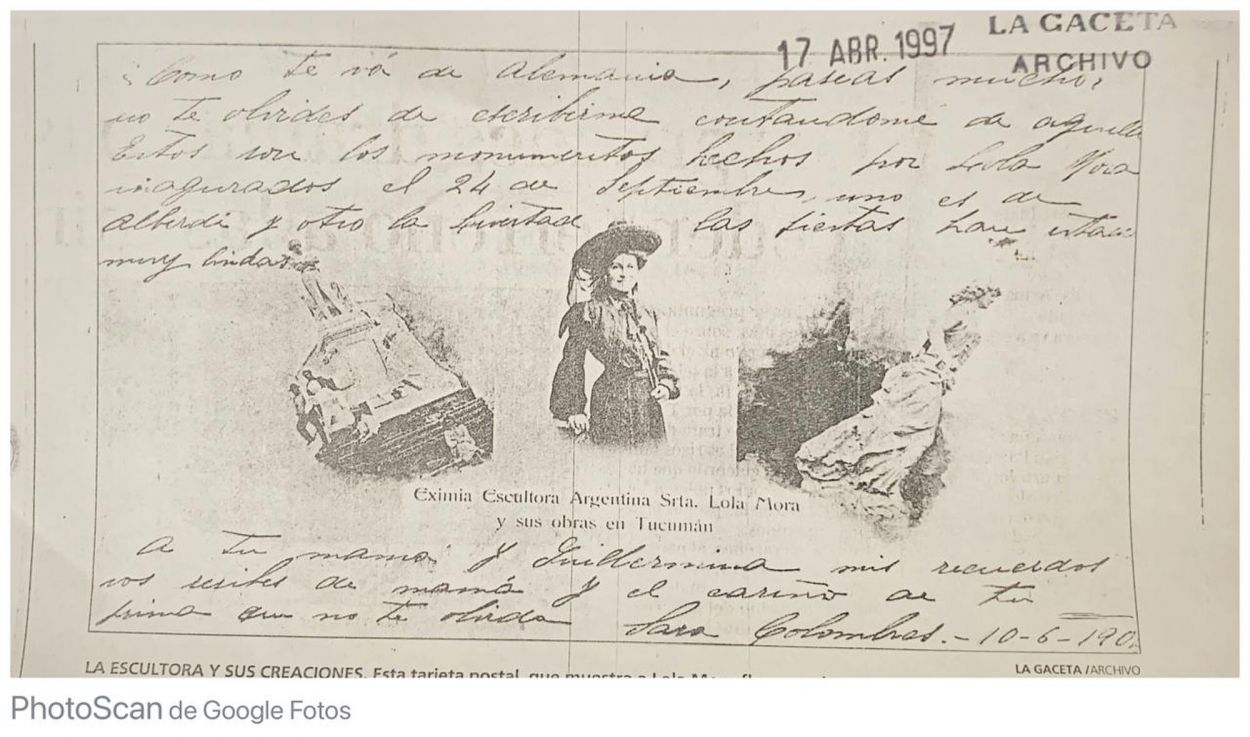 LA GACETA
17 ABR. 1997
ARCHIVO
¿Como te vá de Alemania, paseas mucho,
no te olvides de escribirme contandome de aquella
Estos son los monumentos hechos por Lola Mora
inagurados el 24 de Septiembre, uno es de
Alberdi y otro la livertad las fiestas han estado
muy lindas
Eximia Escultora Argentina Srta. Lola Mora
y sus obras en Tucumán
A tu mama y Guillermina mis recuerdos
vos recibes de mamá y el cariño de tu
prima que no te olvida Sara Colombres. - 10-6-190
LA ESCULTORA Y SUS CREACIONES. Esta tarjeta postal, que muestra a Lola Mora
LA GACETA / ARCHIVO
PhotoScan de Google Fotos